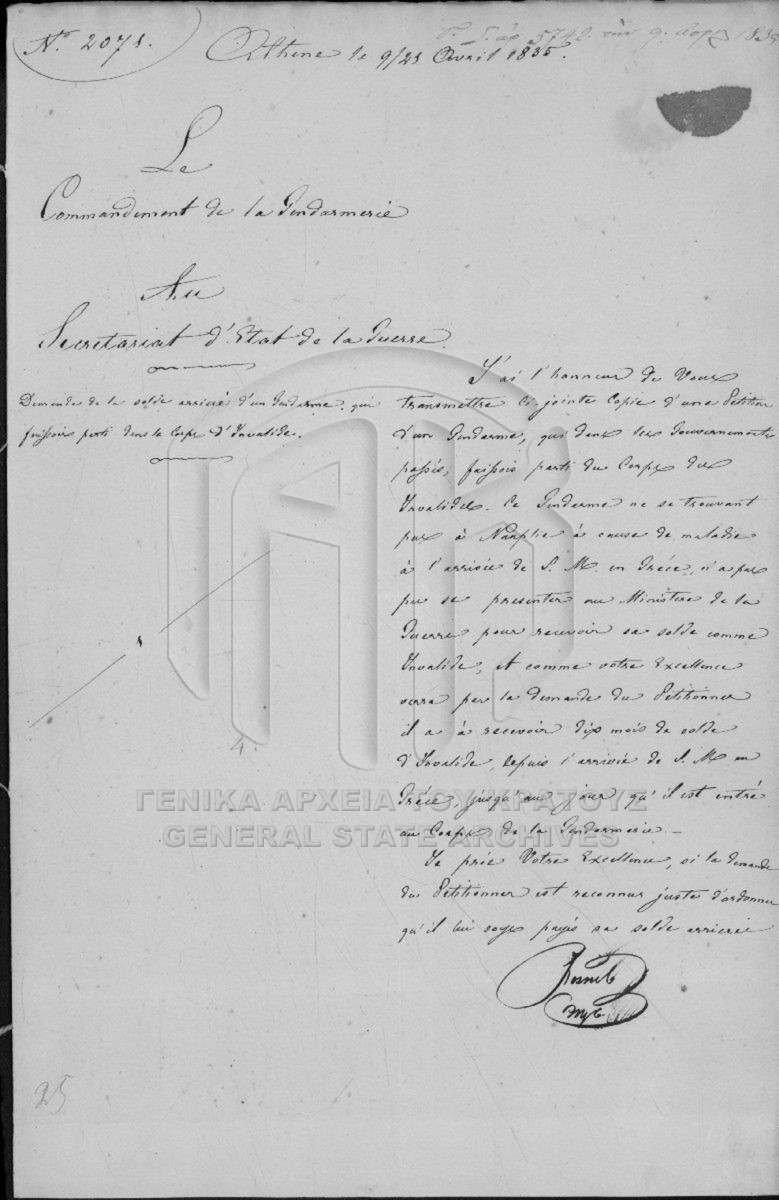 No 2071.
Athene le 9/21 Avril 1835.
5742. 9.
Le
Commandement de la Gendarmerie
Au
Secretariat d'Etat de la Guerre
Demande de la solde arrieré d'un Gendarme, qui
faissois parti dans le Corps d'Invalide.
J'ai l'honneur de Vous
transmettre ci-jointe Copie d'une Pétition
d'un Gendarme, qui dans les Gouvernements
passés, faissois parti du Corps des
Invalides. Ce Gendarme ne se trouvant
pas à Nauplie à cause de maladie
à l'arrivée de S. M. en Grèce, n'a pas
pu se presenter au Ministere de la
Guerre pour recevoir sa solde comme
Invalide, et comme votre Excellence
verra par la demande du Petitionner
il a à recevoir dix mois de solde
d'Invalide, depuis l'arrivée de S. M. en
Grèce, jusqu'au jour qu'il est entré
au Corps de la Gendarmerie. –
Je prie Votre Excellence, si la demande
du Petitionner est reconnue juste d'ordonner
qu'il lui soye payés sa solde arrierée
4.
ΓΕΝΙΚΑ ΑΡΧΕΙΑ ΤΟΥ ΚΡΑΤΟΥΣ
GENERAL STATE ARCHIVES
25